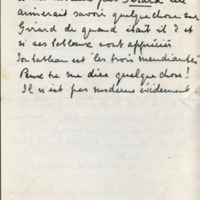 par Girard elle
aimerait savoir quelque chose sur
Girard de quand était il ? et
si ses tableaux sont appréciés
Son tableau est "les trois mendiantes"
Peux tu me dire quelque chose !
Il n'est pas moderne évidement